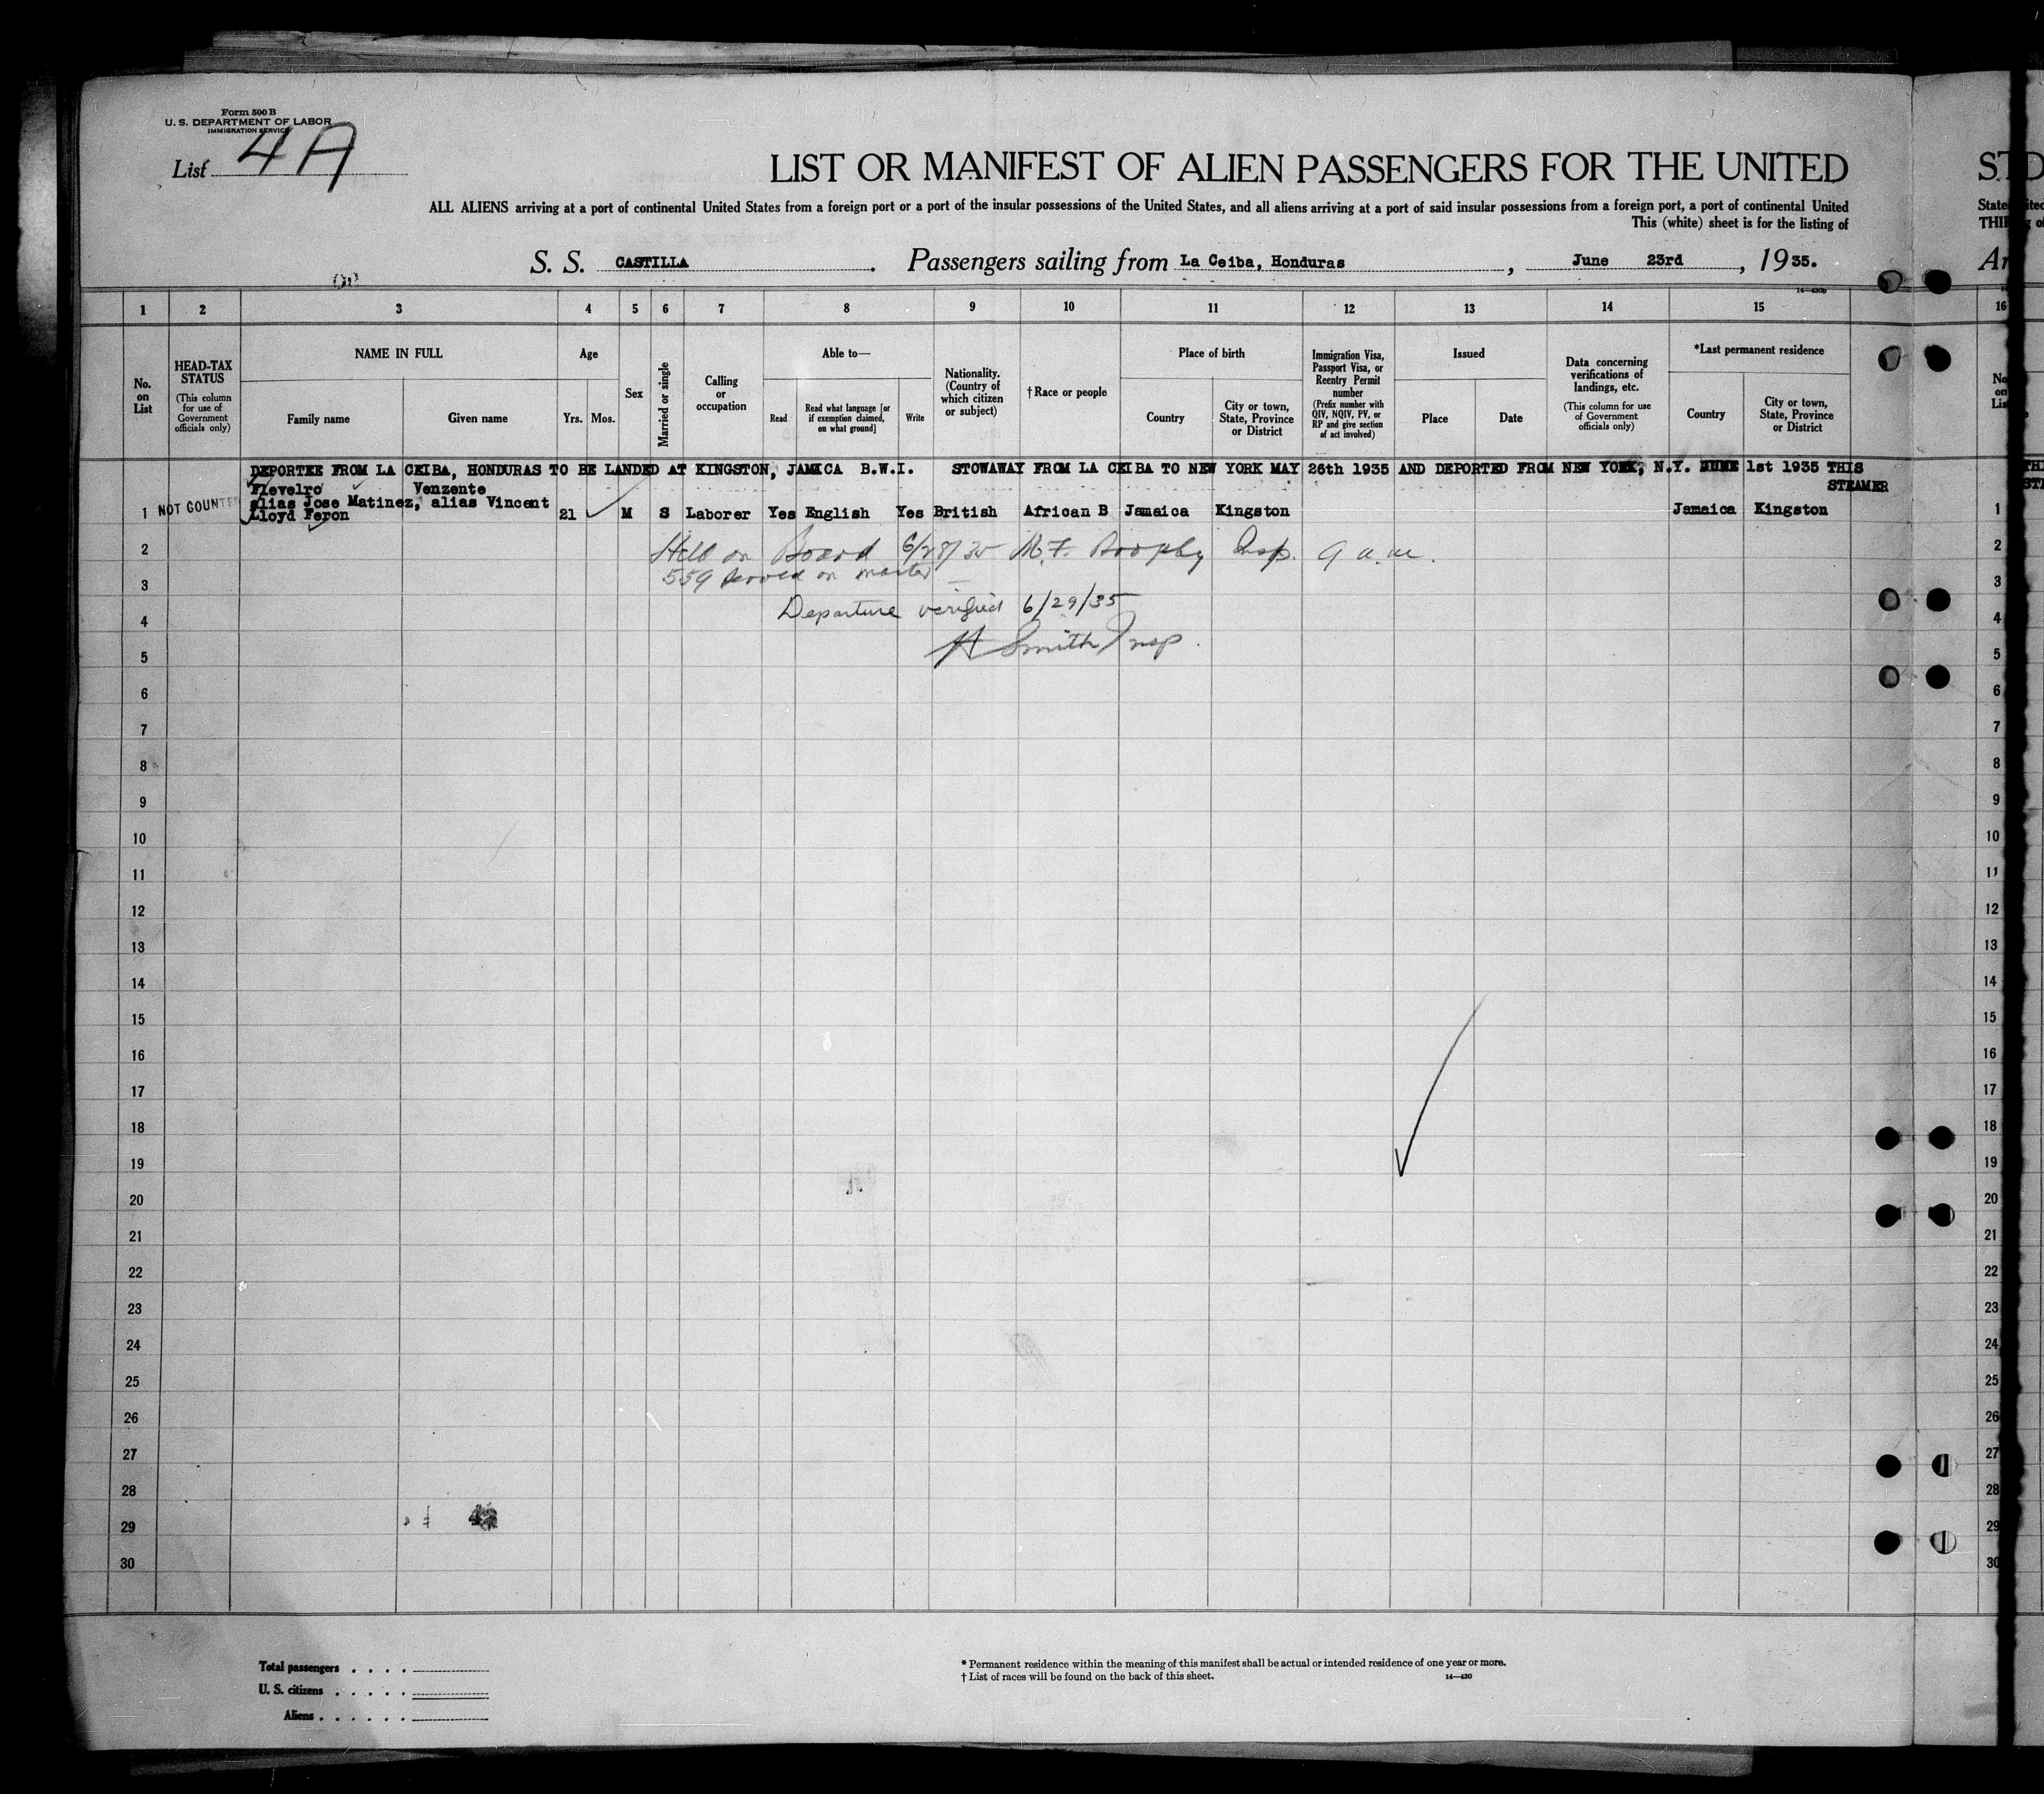 Form 500 B
U. S. DEPARTMENT OF LABOR
IMMIGRATION SERVICE
List 4A
LIST OR MANIFEST OF ALIEN PASSENGERS FOR THE UNITED
ALL ALIENS arriving at a port of continental United States from a foreign port or a port of the insular possessions of the United States, and all aliens arriving at a port of said insular possessions from a foreign port, a port of continental United
This (white) sheet is for the listing of
S. S. CASTILLA. Passengers sailing from La Ceiba, Honduras, June 23rd, 1935.
14—430b
1 2 3 4 5 6 7 8 9 10 11 12 13 14 15 16
No. on List
HEAD-TAX STATUS
(This column for use of Government officials only)
NAME IN FULL
Family name Given name
Age
Yrs. Mos.
Sex
Married or single
Calling or occupation
Able to—
Read Read what language [or if exemption claimed, on what ground] Write
Nationality. (Country of which citizen or subject)
† Race or people
Place of birth
Country City or town, State, Province or District
Immigration Visa, Passport Visa, or Reentry Permit number
(Prefix number with QIV, NQIV, PV, or RP and give section of act involved)
Issued
Place Date
Data concerning verifications of landings, etc.
(This column for use of Government officials only)
*Last permanent residence
Country City or town, State, Province or District
DEPORTEE FROM LA CEIBA, HONDURAS TO BE LANDED AT KINGSTON, JAMICA B.W.I. STOWAWAY FROM LA CEIBA TO NEW YORK MAY 26th 1935 AND DEPORTED FROM NEW YORK, N.Y. JUNE 1st 1935 THIS
STEAMER
Flevelro Venzente
alias Jose Matinez, alias Vincent
1 NOT COUNTED Lloyd Feron 21 M S Laborer Yes English Yes British African B Jamaica Kingston Jamaica Kingston 1
2 Held on Board 6/28/35 M.F. Brophy Insp. 9 a.m. 2
559 served on master
3 3
Departure verified 6/29/35
4 4
H Smith Insp.
5 5
6 6
7 7
8 8
9 9
10 10
11 11
12 12
13 13
14 14
15 15
16 16
17 17
18 18
19 19
20 20
21 21
22 22
23 23
24 24
25 25
26 26
27 27
28 28
29 29
30 30
Total passengers
U. S. citizens
Aliens
* Permanent residence within the meaning of this manifest shall be actual or intended residence of one year or more.
† List of races will be found on the back of this sheet. 14—430